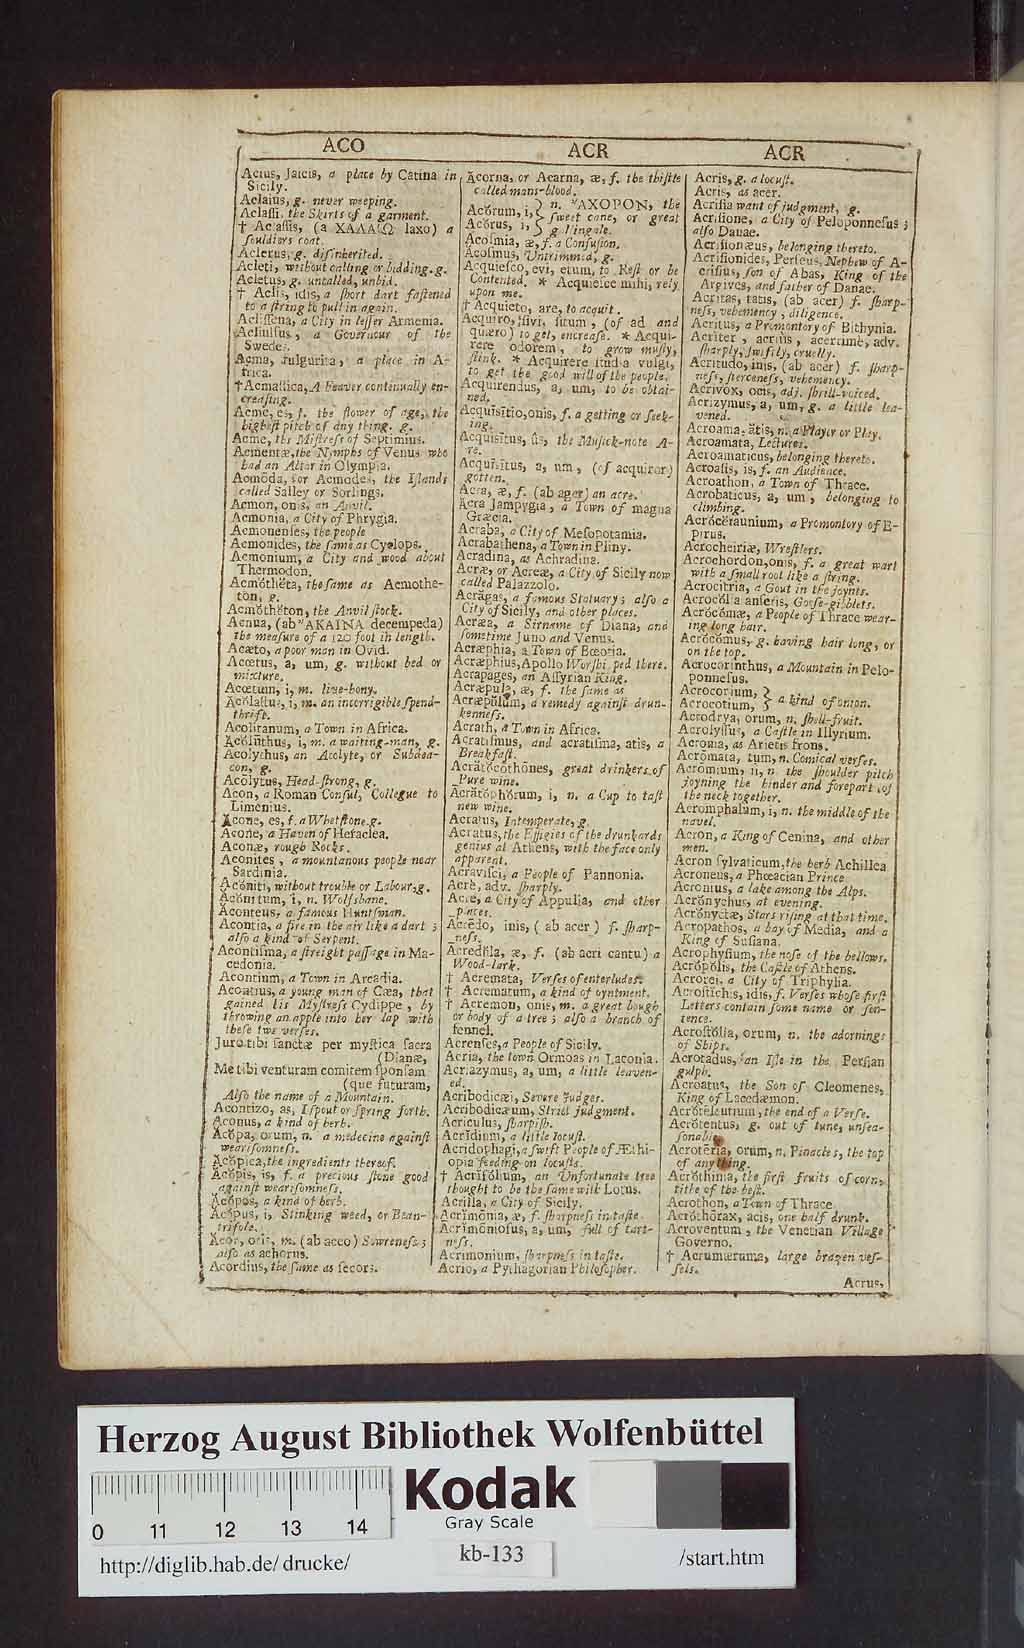 ACO
ACR
ACR
Acius, Jaicis, a place by Catina in
Sicily.
Aclaius, g. never weeping.
Aclassi, the Skirts of a garment.
† Aclassis, (a ΧΑΛΑΙΩ laxo) a
souldiers coat.
Aclerus, g. disinherited.
Acleti, without calling or bidding. g.
Acletus, g. uncalled, unbid.
† Aclis, idis, a short dart fastened
to a string to pull in again.
Aclissena, a City in lesser Armenia.
Acliulsus, a Governour of the
Swedes.
Acma, fulgurita, a place in A-
frica.
† Acmastica, A Feaver continually en-
creasing.
Acme, es, f. the flower of age, the
highest pitch of any thing. g.
Acme, the Mistress of Septimius.
Acmentæ, the Nymphs of Venus who
had an Altar in Olympia.
Acmŏda, or Acmodes, the Islands
called Salley or Sorlings.
Acmon, onis, an Anvil.
Acmonia, a City of Phrygia.
Acmonenses, the people
Acmonides, the same as Cyclops.
Acmonium, a City and wood about
Thermodon.
Acmŏthĕta, the same as Acmothe-
ton, g.
Acmŏthĕton, the Anvil stock.
Acnua, (ab ἈΚΑΙΝΑ decempeda)
the measure of a 120 foot in length.
Acæto, a poor man in Ovid.
Acœtus, a, um, g. without bed or
mixture.
Acœtum, i, m. live-hony.
Acŏlastus, i, m. an incorrigible spend-
thrift.
Acolitanum, a Town in Africa.
Acŏlūthus, i, m. a waiting-man, g.
Acolythus, an Acolyte, or Subdea-
con, g.
Acŏlytus, Head-strong, g.
Acon, a Roman Consul, Collegue to
Limenius.
Ăcone, es, f. a Whetstone. g.
Acone, a Haven of Heraclea.
Aconæ, rough Rocks.
Aconites, a mountanous people near
Sardinia.
Acŏniti, without trouble or Labour, g.
Acŏnitum, i, n. Wolfsbane.
Aconteus, a famous Huntsman.
Acontia, a fire in the air like a dart ;
also a kind of Serpent.
Acontisma, a streight passage in Ma-
cedonia.
Acontium, a Town in Arcadia.
Acontius, a young man of Cæa, that
gained his Mystress Cydippe, by
throwing an apple into her lap with
these two verses.
Juro tibi sanctæ per mystica sacra
(Dianæ,
Me tibi venturam comitem sponsam
(que futuram,
Also the name of a Mountain.
Acontizo, as, I spout or spring forth.
Aconus, a kind of herb.
Acŏpa, orum, n. a medecine against
wearisomness.
Acŏpica, the ingredients thereof.
Acŏpis, is, f. a precious stone good
against wearisomness.
Acŏpos, a kind of herb.
Acŏpus, i, Stinking weed, or Bean-
trifole.
Acor, oris, m. (ab aceo) Sowreness ;
also as achorus.
Acordius, the same as secors.
Ăcorna, or Acarna, æ, f. the thistle
called mans-blood.
Acŏrum, i, } n. ἌΧΟΡΟΝ, the
Acŏrus, i, } sweet cane, or great
g Lingale.
Acosmia, æ, f. a Confusion.
Acosmus, Untrimmed, g.
Acquiesco, evi, etum, to Rest or be
Contented. * Acquiesce mihi, rely
upon me.
† Acquieto, are, to acquit.
Acquiro, sivi, situm, (of ad and
quæro) to get, encrease. * Acqui-
rere odorem, to grow musty,
stink. * Acquirere studia vulgi,
to get the good will of the people.
Acquirendus, a, um, to be obtai-
ned.
Acquisitio, onis, f. a getting or seek-
ing.
Acquisitus, ûs, the Musick-note A-
re.
Acquisitus, a, um, (of acquiror)
gotten.
Acra, æ, f. (ab ager) an acre.
Ăcra Jampygia, a Town of magna
Græcia.
Acraba, a City of Mesopotamia.
Acrabathena, a Town in Pliny.
Acradina, as Achradina.
Acræ, or Acreæ, a City of Sicily now
called Palazzolo.
Acrăgas, a famous Statuary ; also a
City of Sicily, and other places.
Acræa, a Sirname of Diana, and
sometime Juno and Venus.
Acræphia, a Town of Bœotia.
Acræphius, Apollo Worshipped there.
Acrapages, an Assyrian King.
Acræpula, æ, f. the same as
Acræpŭlum, a remedy against drun-
kenness.
Acrath, a Town in Africa.
Acratismus, and acratisma, atis, a
Breakfast.
Acrătŏcŏthōnes, great drinkers of
Pure wine.
Acrătŏphŏrum, i, n. a Cup to tast
new wine.
Acratus, Intemperate, g.
Acratus, the Effigies of the drunkards
genius at Athens, with the face only
apparent.
Acravisci, a People of Pannonia.
Acrè, adv. sharply.
Acre, a City of Appulia, and other
places.
Acrēdo, inis, ( ab acer ) f. sharp-
ness.
Acredŭla, æ, f. (ab acri cantu) a
Wood-lark.
† Acremata, Verses of enterludes.
† Acrematum, a kind of oyntment.
† Acremon, onis, m. a great bough
or body of a tree ; also a branch of
fennel.
Acrenses, a People of Sicily.
Acria, the town Ormoas in Laconia.
Acriazymus, a, um, a little leaven-
ed.
Acribodicæi, Severe Judges.
Acribodicæum, Strict judgment.
Acriculus, sharpish.
Acrĭdium, a little locust.
Acridophagi, a swift People of Æthi-
opia feeding on locusts.
† Acrifŏlium, an Unfortunate tree
thought to be the same with Lotus.
Acrilla, a City of Sicily.
Acrīmōnia, æ, f. sharpness in taste.
Acrīmōniosus, a, um, full of tart-
ness.
Acrimonium, sharpness in taste.
Acrio, a Pythagorian Philosopher.
Acris, g. a locust.
Acris, as acer.
Acrisia want of judgment, g.
Acrisione, a City of Peloponnesus ;
also Danae.
Acrisionæus, belonging thereto.
Acrisionides, Perseus, Nephew of A-
crisius, son of Abas, King of the
Argives, and father of Danae.
Acritas, tatis, (ab acer) f. sharp-
ness, vehemency, diligence.
Acritus, a Promontory of Bithynia.
Acriter, acriùs, acerrimè, adv.
sharply, swiftly, cruelly.
Acritudo, inis, (ab acer) f. sharp-
ness, fierceness, vehemency.
Acrivox, ocis, adj. shrill-voiced.
Acrizymus, a, um, g. a little lea-
vened.
Acroama, ătis, n. a Player or Play.
Acroamata, Lectures.
Acroamaticus, belonging thereto.
Acroasis, is, f. an Audience.
Acroathon, a Town of Thrace.
Acrobaticus, a, um, belonging to
climbing.
Acrŏcĕraunium, a Promontory of E-
pirus.
Acrocheiriæ, Wrestlers.
Acrochordon, onis, f. a great wart
with a small root like a string.
Acrocitria, a Gout in the joynts.
Acrocŏlia anseris, Goose-gibblets.
Acrŏcŏmæ, a People of Thrace wear-
ing long hair.
Acrŏcŏmus, g. having hair long, or
on the top.
Acrocorinthus, a Mountain in Pelo-
ponnesus.
Acrocorium, } a kind of onion.
Acrocotium, }
Acrodrya, orum, n. shell-fruit.
Acrolyssus, a Castle in Illyrium.
Acronia, as Arietis frons.
Acrŏmata, tum, n. Comical verses.
Acromium, ii, n. the shoulder pitch
joyning the hinder and forepart of
the neck together.
Acromphalum, i, n. the middle of the
navel.
Acron, a King of Cenina, and other
men.
Acron sylvaticum, the herb Achillea
Acroneus, a Phœacian Prince
Acronius, a lake among the Alps.
Acrŏnychus, at evening.
Acrŏnyctæ, Stars rising at that time.
Acropathos, a bay of Media, and a
King of Susiana.
Acrophysium, the nose of the bellows.
Acrŏpŏlis, the Castle of Athens.
Acrorei, a City of Triphylia.
Acrostichis, idis, f. Verses whose first
Letters contain some name or sen-
tence.
Acrostŏlia, orum, n. the adornings
of Ships.
Acrotadus, an Isle in the Persian
gulph.
Acroatus, the Son of Cleomenes,
King of Lacedæmon.
Acrŏteleutium, the end of a Verse.
Acrŏtentus, g. out of tune, unsea-
sonable.
Acrotēria, orum, n. Pinacles, the top
of any thing.
Acrŏthinia, the first fruits of corn,
tithe of the best.
Acrothon, a Town of Thrace
Acrŏthōrax, acis, one half drunk.
Acroventum, the Venetian Village
Governo.
† Acrumærama, large brazen ves-
sels.
Acrus,
Herzog August Bibliothek Wolfenbüttel
Kodak
Gray Scale
0 11 12 13 14
http://diglib.hab.de/ drucke/
kb-133
/start.htm